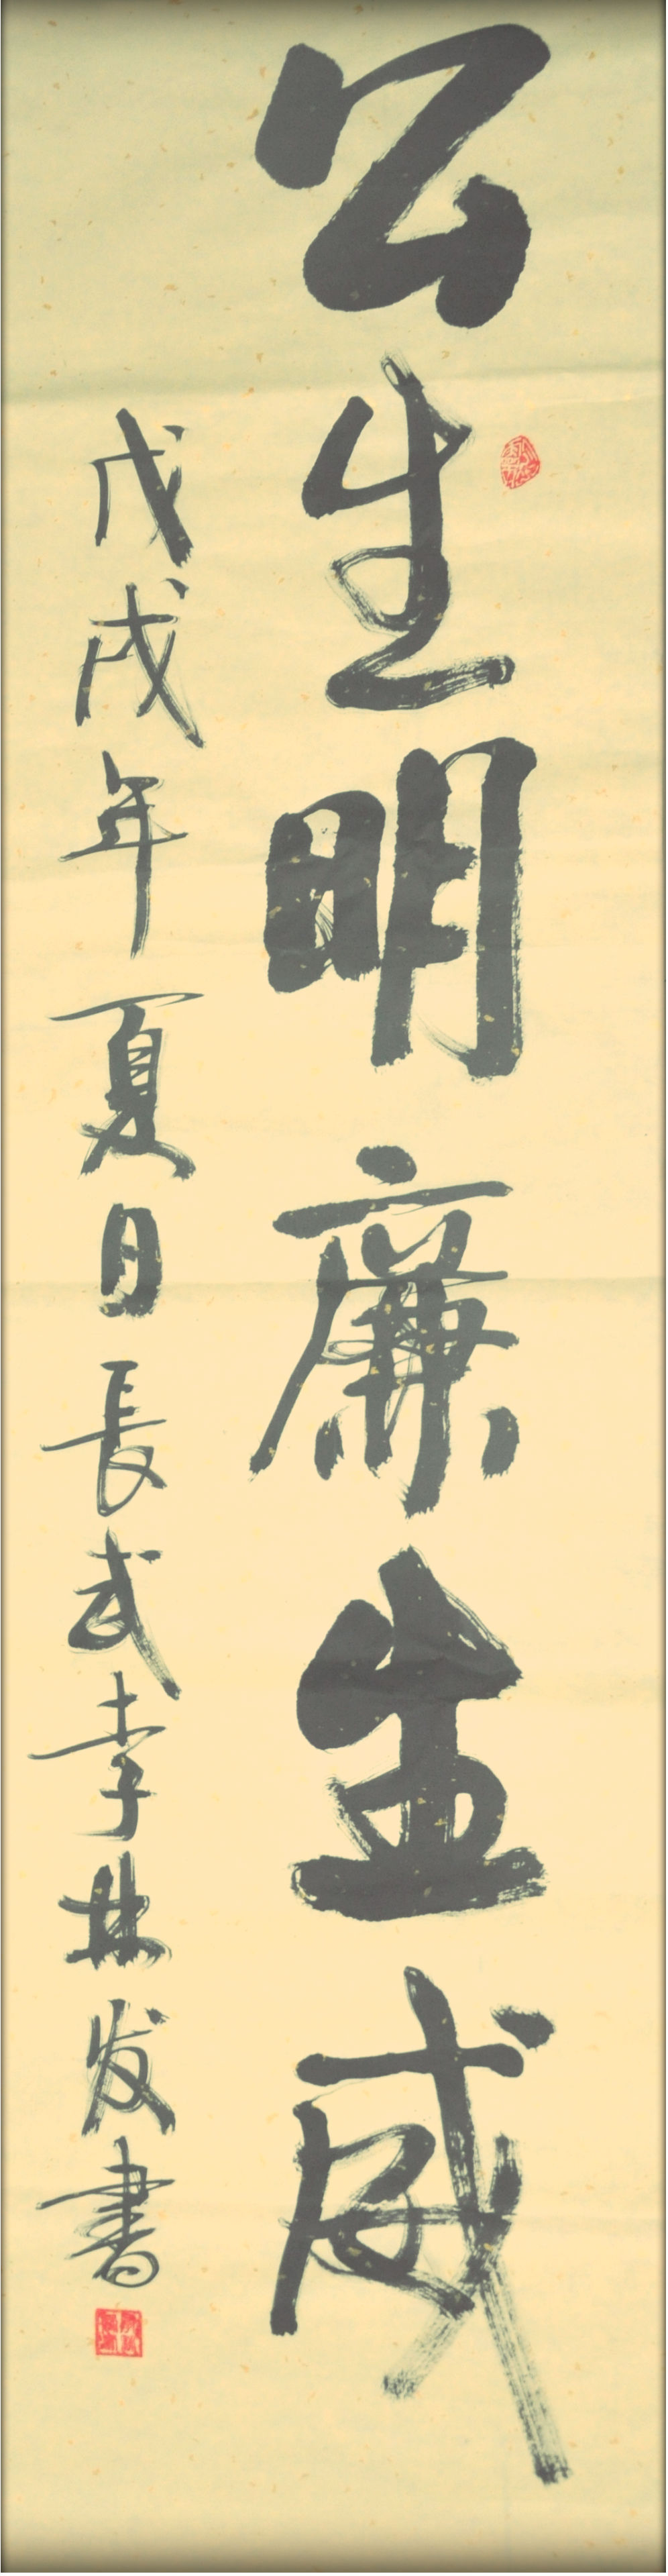 公生明廉生威
戊戌年夏日長武李林发書